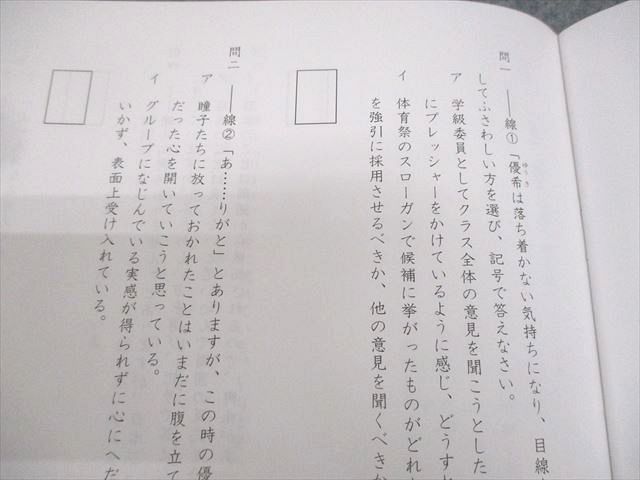 問一 ――線①「優希は落ち着かない気持ちになり、目線
ゆうき
してふさわしい方を選び、記号で答えなさい。
ア 学級委員としてクラス全体の意見を聞こうとした
にプレッシャーをかけているように感じ、どうすれ
イ 体育祭のスローガンで候補に挙がったものがどれ
を強引に採用させるべきか、他の意見を聞くべきか
問二 ――線②「あ……りがと」とありますが、この時の優
ア 瞳子たちに放っておかれたことはいまだに腹を立て
だった心を開いていこうと思っている。
イ グループになじんでいる実感が得られずに心にへだ
いかず、表面上受け入れている。